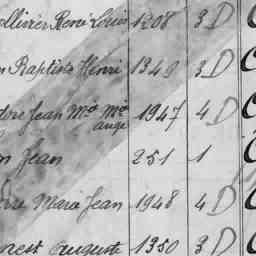 ollivier René Louis 1208 3 D
n Baptiste Henri 1349 3 D
dore Jean Mie Mie 1947 4 D
ange
n Jean 251 1
erre Marie Jean 1948 4 D
nest Auguste 1350 3 D